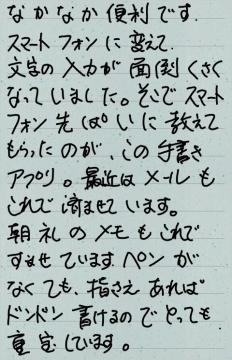 なかなか便利です.
スマートフォンに変えて.
文字の入力が面倒くさく
なっていました。そこでスマート
フォン先ぱいに教えて
もらったのが、この手書き
アプリ。最近はメールも
これで済ませています。
朝礼のメモもこれで
すませていますペンが
なくても、指さえあれば
ドンドン書けるのでとっても
重宝しています。